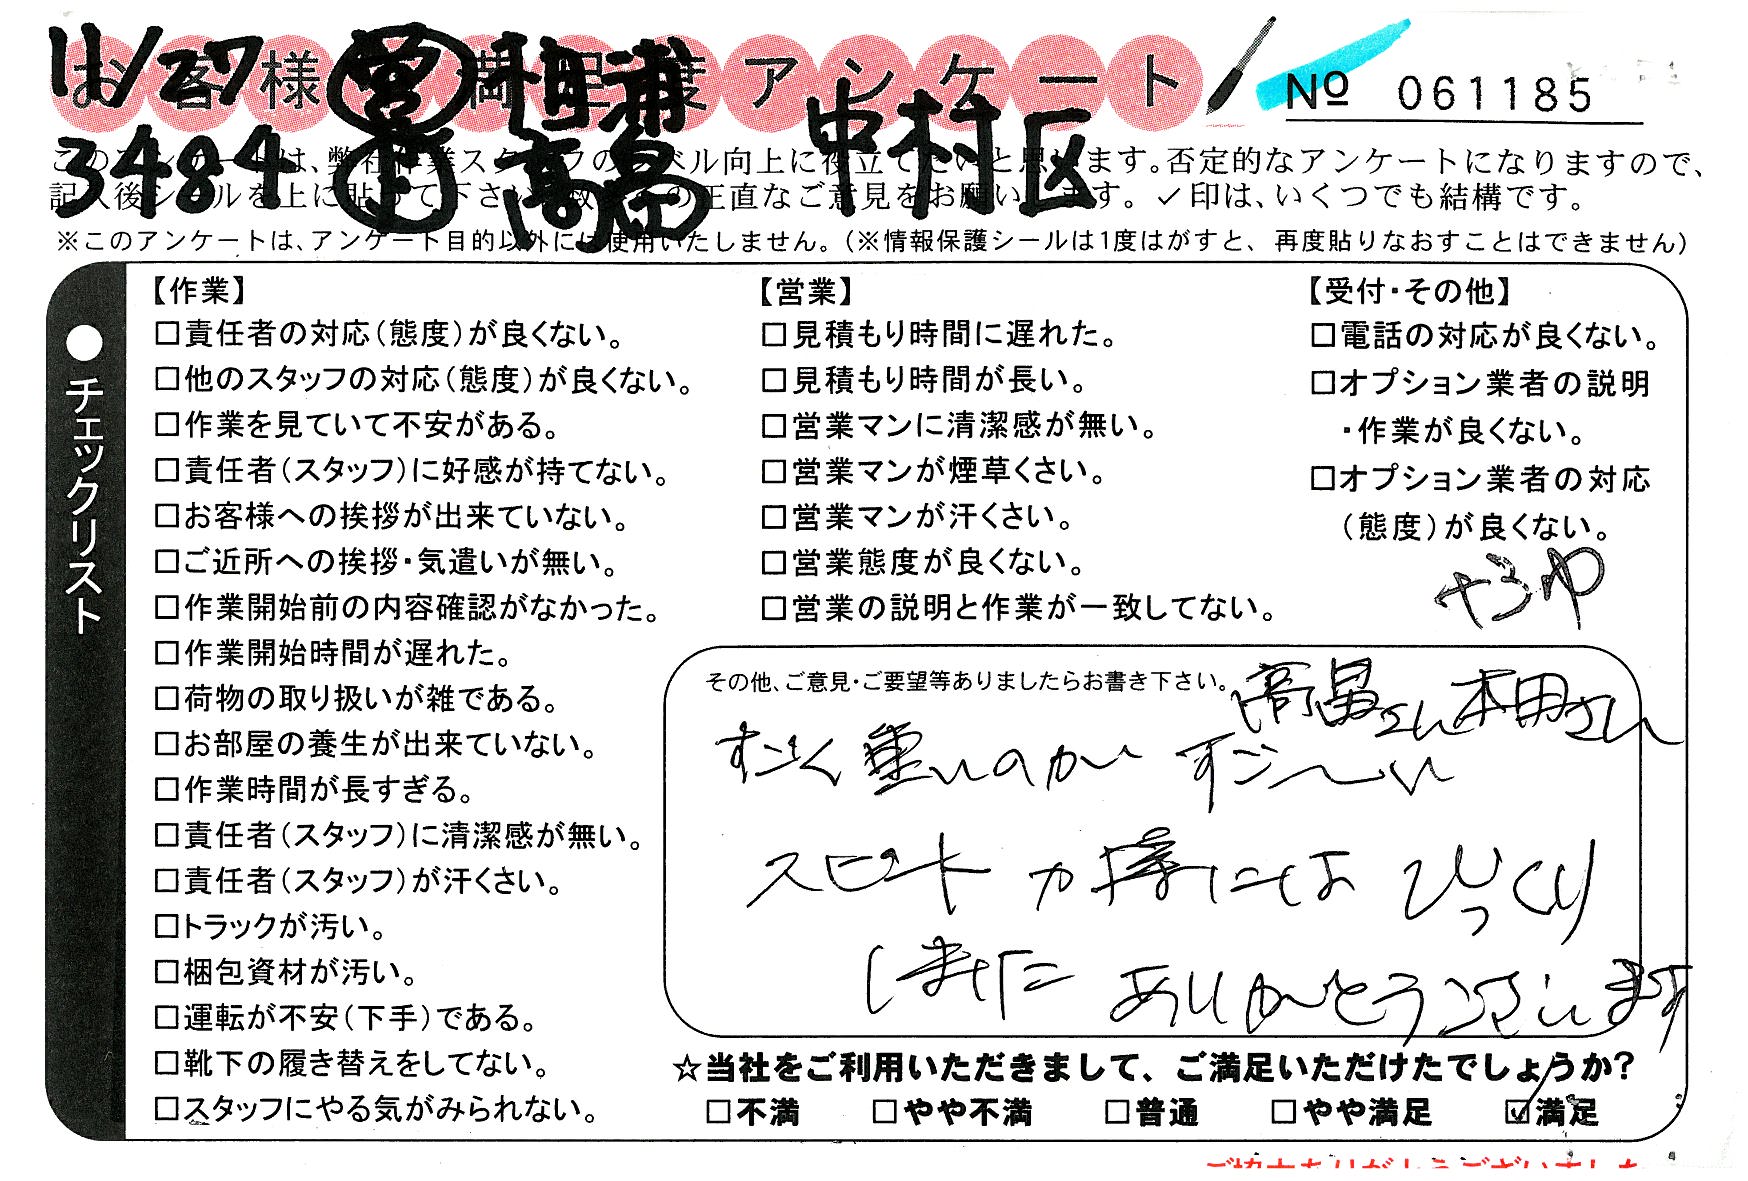 11/27 営 相浦 中村区
3484 高畠
お客様満足度アンケート
№ 061185
このアンケートは、弊社作業スタッフのレベル向上に役立てたいと思います。否定的なアンケートになりますので、
記入後シールを上に貼って下さい。の正直なご意見をお願いします。✓印は、いくつでも結構です。
※このアンケートは、アンケート目的以外には使用いたしません。(※情報保護シールは1度はがすと、再度貼りなおすことはできません)
●チェックリスト
【作業】
□責任者の対応(態度)が良くない。
□他のスタッフの対応(態度)が良くない。
□作業を見ていて不安がある。
□責任者(スタッフ)に好感が持てない。
□お客様への挨拶が出来ていない。
□ご近所への挨拶・気遣いが無い。
□作業開始前の内容確認がなかった。
□作業開始時間が遅れた。
□荷物の取り扱いが雑である。
□お部屋の養生が出来ていない。
□作業時間が長すぎる。
□責任者(スタッフ)に清潔感が無い。
□責任者(スタッフ)が汗くさい。
□トラックが汚い。
□梱包資材が汚い。
□運転が不安(下手)である。
□靴下の履き替えをしてない。
□スタッフにやる気がみられない。
【営業】
□見積もり時間に遅れた。
□見積もり時間が長い。
□営業マンに清潔感が無い。
□営業マンが煙草くさい。
□営業マンが汗くさい。
□営業態度が良くない。
□営業の説明と作業が一致してない。
【受付・その他】
□電話の対応が良くない。
□オプション業者の説明
・作業が良くない。
□オプション業者の対応
(態度)が良くない。
その他、ご意見・ご要望等ありましたらお書き下さい。
高畠さん 本田さん
すごく重いのが すご〜い
スピード
には びっくり
しました ありがとうございます
☆当社をご利用いただきまして、ご満足いただけたでしょうか?
□不満 □やや不満 □普通 □やや満足 ☑満足
ご協力ありがとうございました